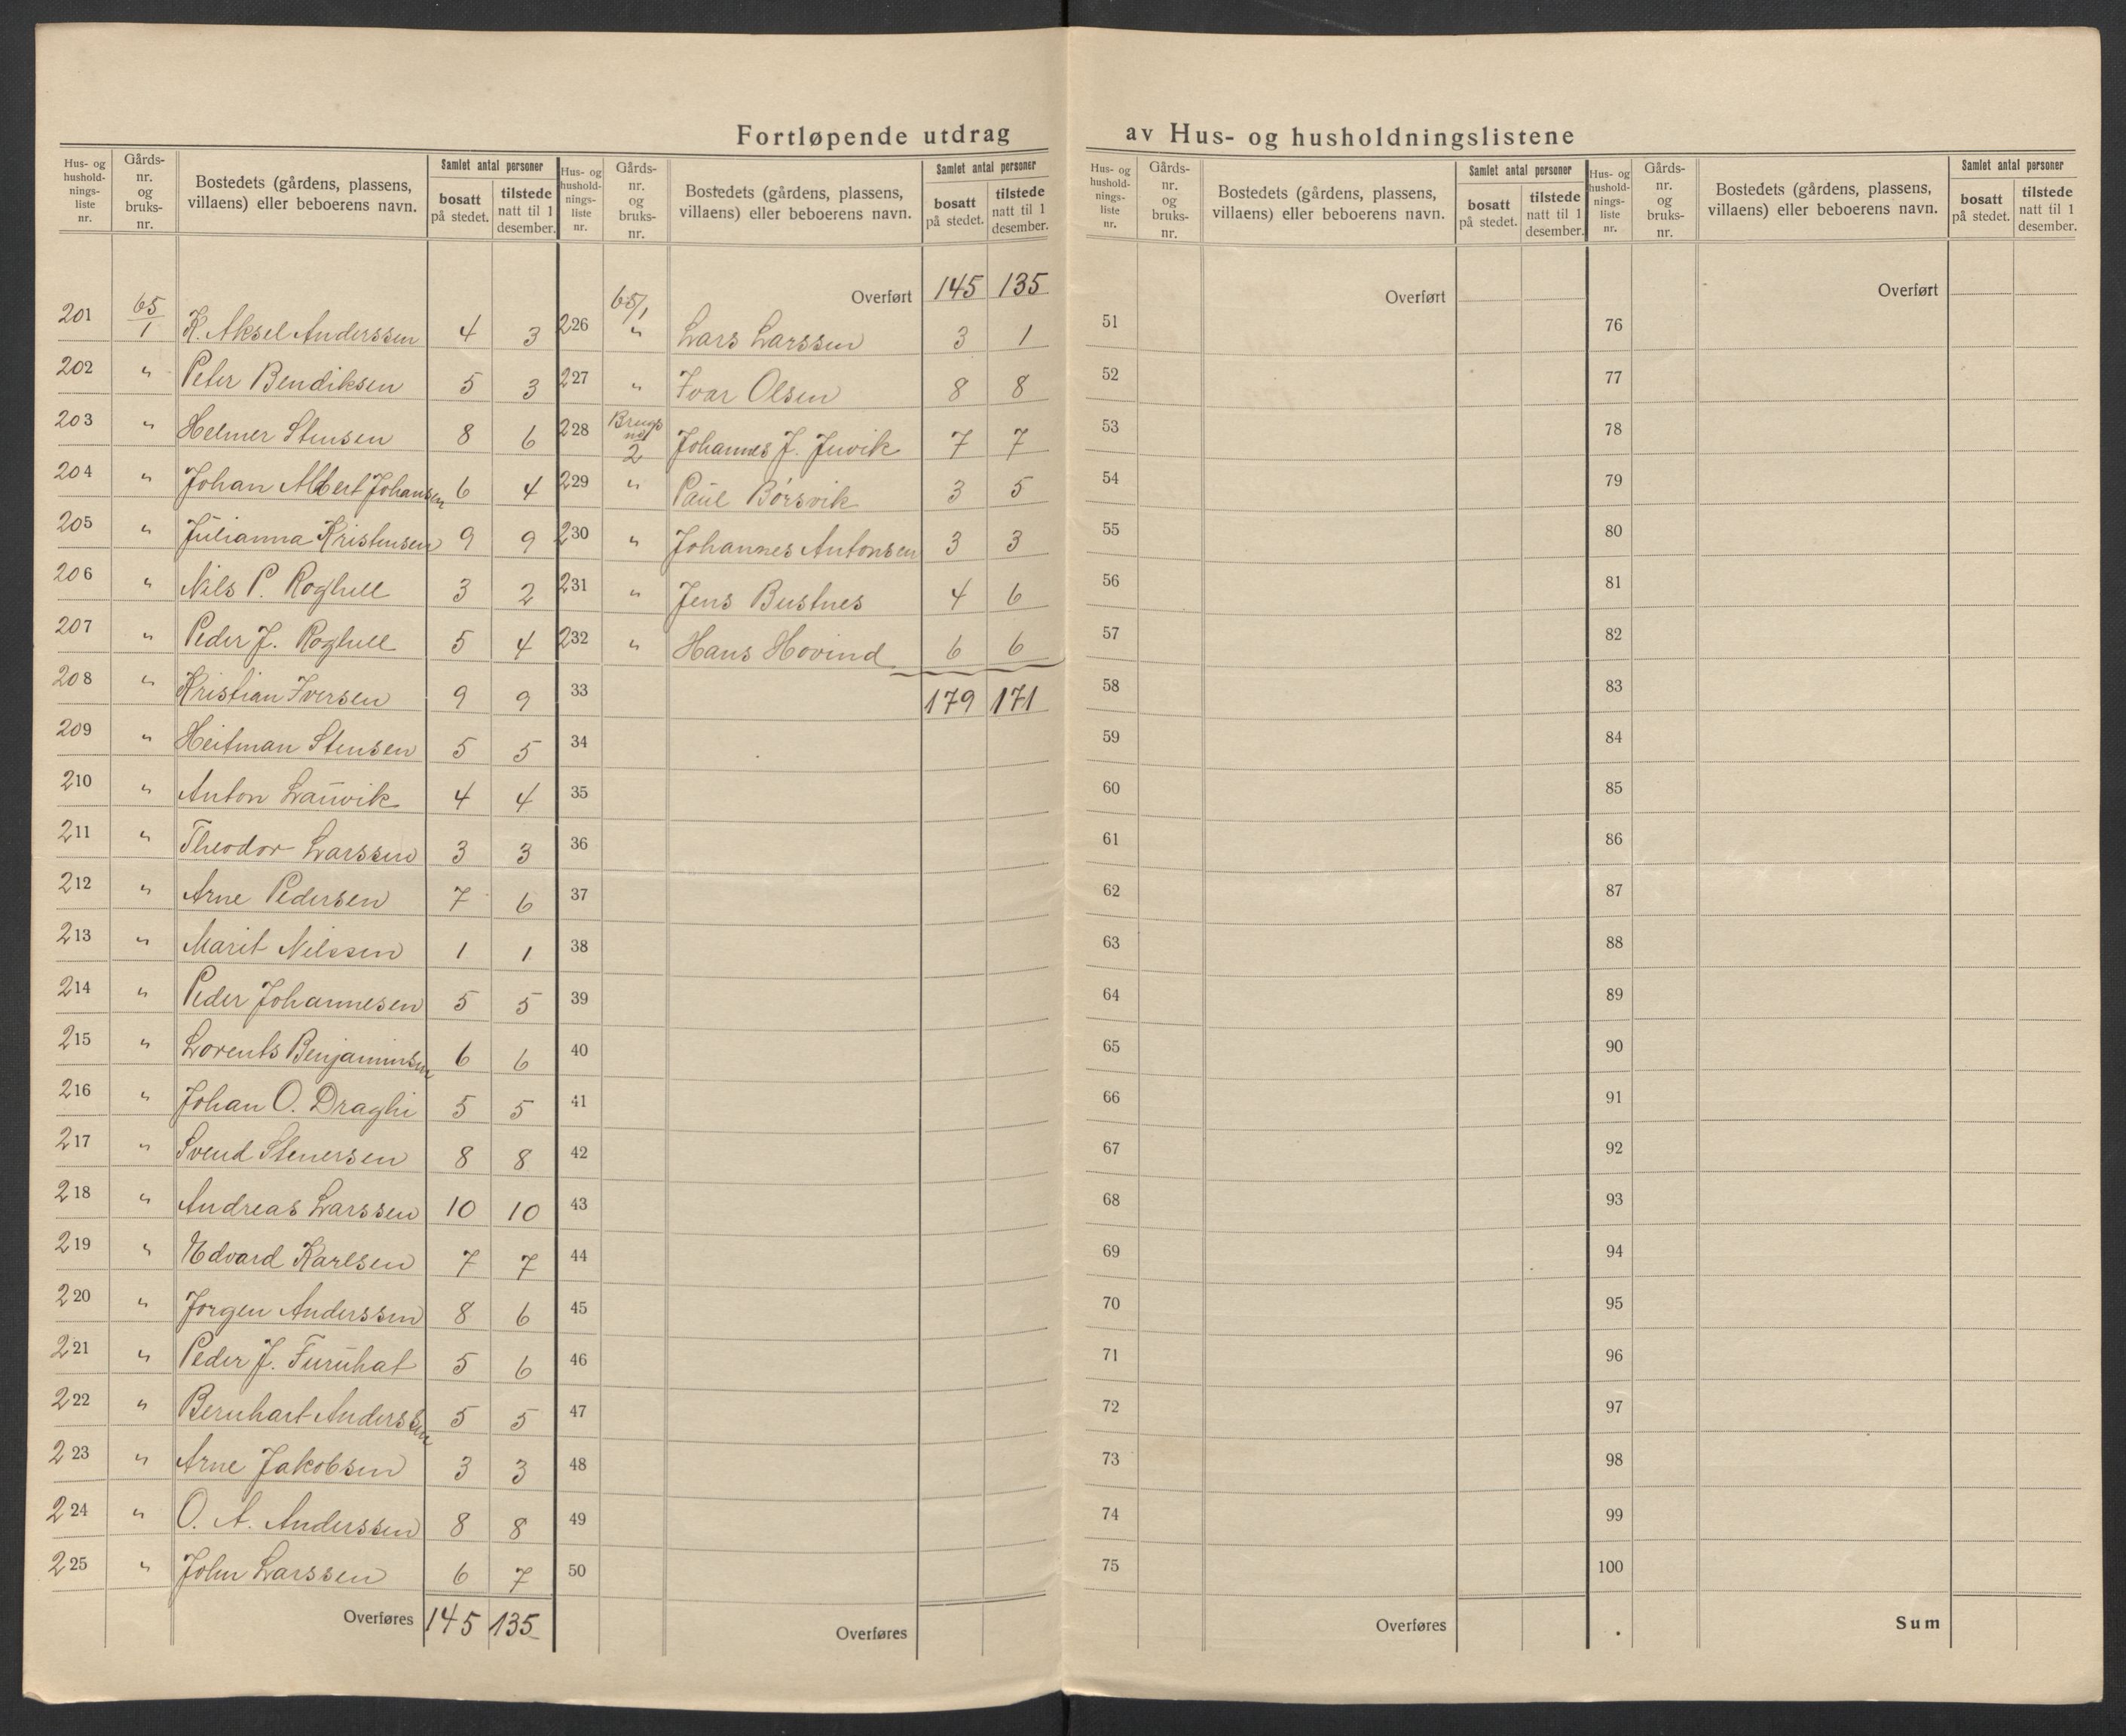 Fortløpende utdrag av Hus- og husholdningslistene
Hus- og hushold-nings-liste nr. Gårds-nr. og bruks-nr. Bostedets (gårdens, plassens, villaens) eller beboerens navn. Samlet antal personer bosatt på stedet. tilstede natt til 1 desember.
201 65/1 K. Aksel Anderssen 4 3
202 " Peter Bendiksen 5 3
203 " Helmer Stensen 8 6
204 " Johan Albert Johansen 6 4
205 " Julianna Kristensen 9 9
206 " Nils P. Roghell 3 2
207 " Peder J. Roghell 5 4
208 " Kristian Iversen 9 9
209 " Heitman Stensen 5 5
210 " Anton Lauvik 4 4
211 " Theodor Larssen 3 3
212 " Arne Pedersen 7 6
213 " Marit Nilssen 1 1
214 " Peder Johannesen 5 5
215 " Lorents Benjaminsen 6 6
216 " Johan O. Draghi 5 5
217 " Svend Stenersen 8 8
218 " Andreas Larssen 10 10
219 " Edvard Karlsen 7 7
220 " Jorgen Anderssen 8 6
221 " Peder J. Furuhat 5 6
222 " Bernhart Anderssen 5 5
223 " Arne Jakobsen 3 3
224 " O. A. Anderssen 8 8
225 " John Larssen 6 7
Overføres 145 135
Hus- og hushold-nings-liste nr. Gårds-nr. og bruks-nr. Bostedets (gårdens, plassens, villaens) eller beboerens navn. Samlet antal personer bosatt på stedet. tilstede natt til 1 desember.
Overført 145 135
226 65/1 " Lars Larssen 3 1
227 " Ivar Olsen 8 8
228 2 Johannes J. Juvik 7 7
229 " Paul Børsvik 3 5
230 " Johannes Antonsen 3 3
231 " Jens Bustnes 4 6
232 " Hans Hovind 6 6
33 179 171
34
35
36
37
38
39
40
41
42
43
44
45
46
47
48
49
50
Overføres
Hus- og hushold-nings-liste nr. Gårds-nr. og bruks-nr. Bostedets (gårdens, plassens, villaens) eller beboerens navn. Samlet antal personer bosatt på stedet. tilstede natt til 1 desember.
Overført
51
52
53
54
55
56
57
58
59
60
61
62
63
64
65
66
67
68
69
70
71
72
73
74
75
Overføres
Hus- og hushold-nings-liste nr. Gårds-nr. og bruks-nr. Bostedets (gårdens, plassens, villaens) eller beboerens navn. Samlet antal personer bosatt på stedet. tilstede natt til 1 desember.
Overført
76
77
78
79
80
81
82
83
84
85
86
87
88
89
90
91
92
93
94
95
96
97
98
99
100
Sum